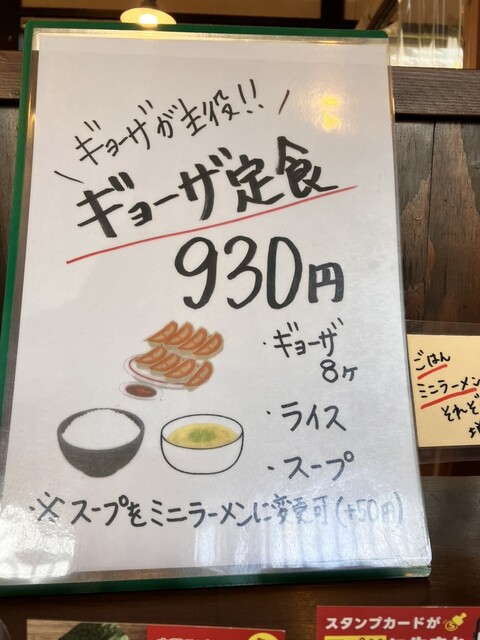 ギョーザが主役!!
ギョーザ定食
930円
・ギョーザ
8ヶ
・ライス
・スープ
※スープをミニラーメンに変更可(+50円)
ごはん
ミニラーメン
それぞ
スタンプカードが